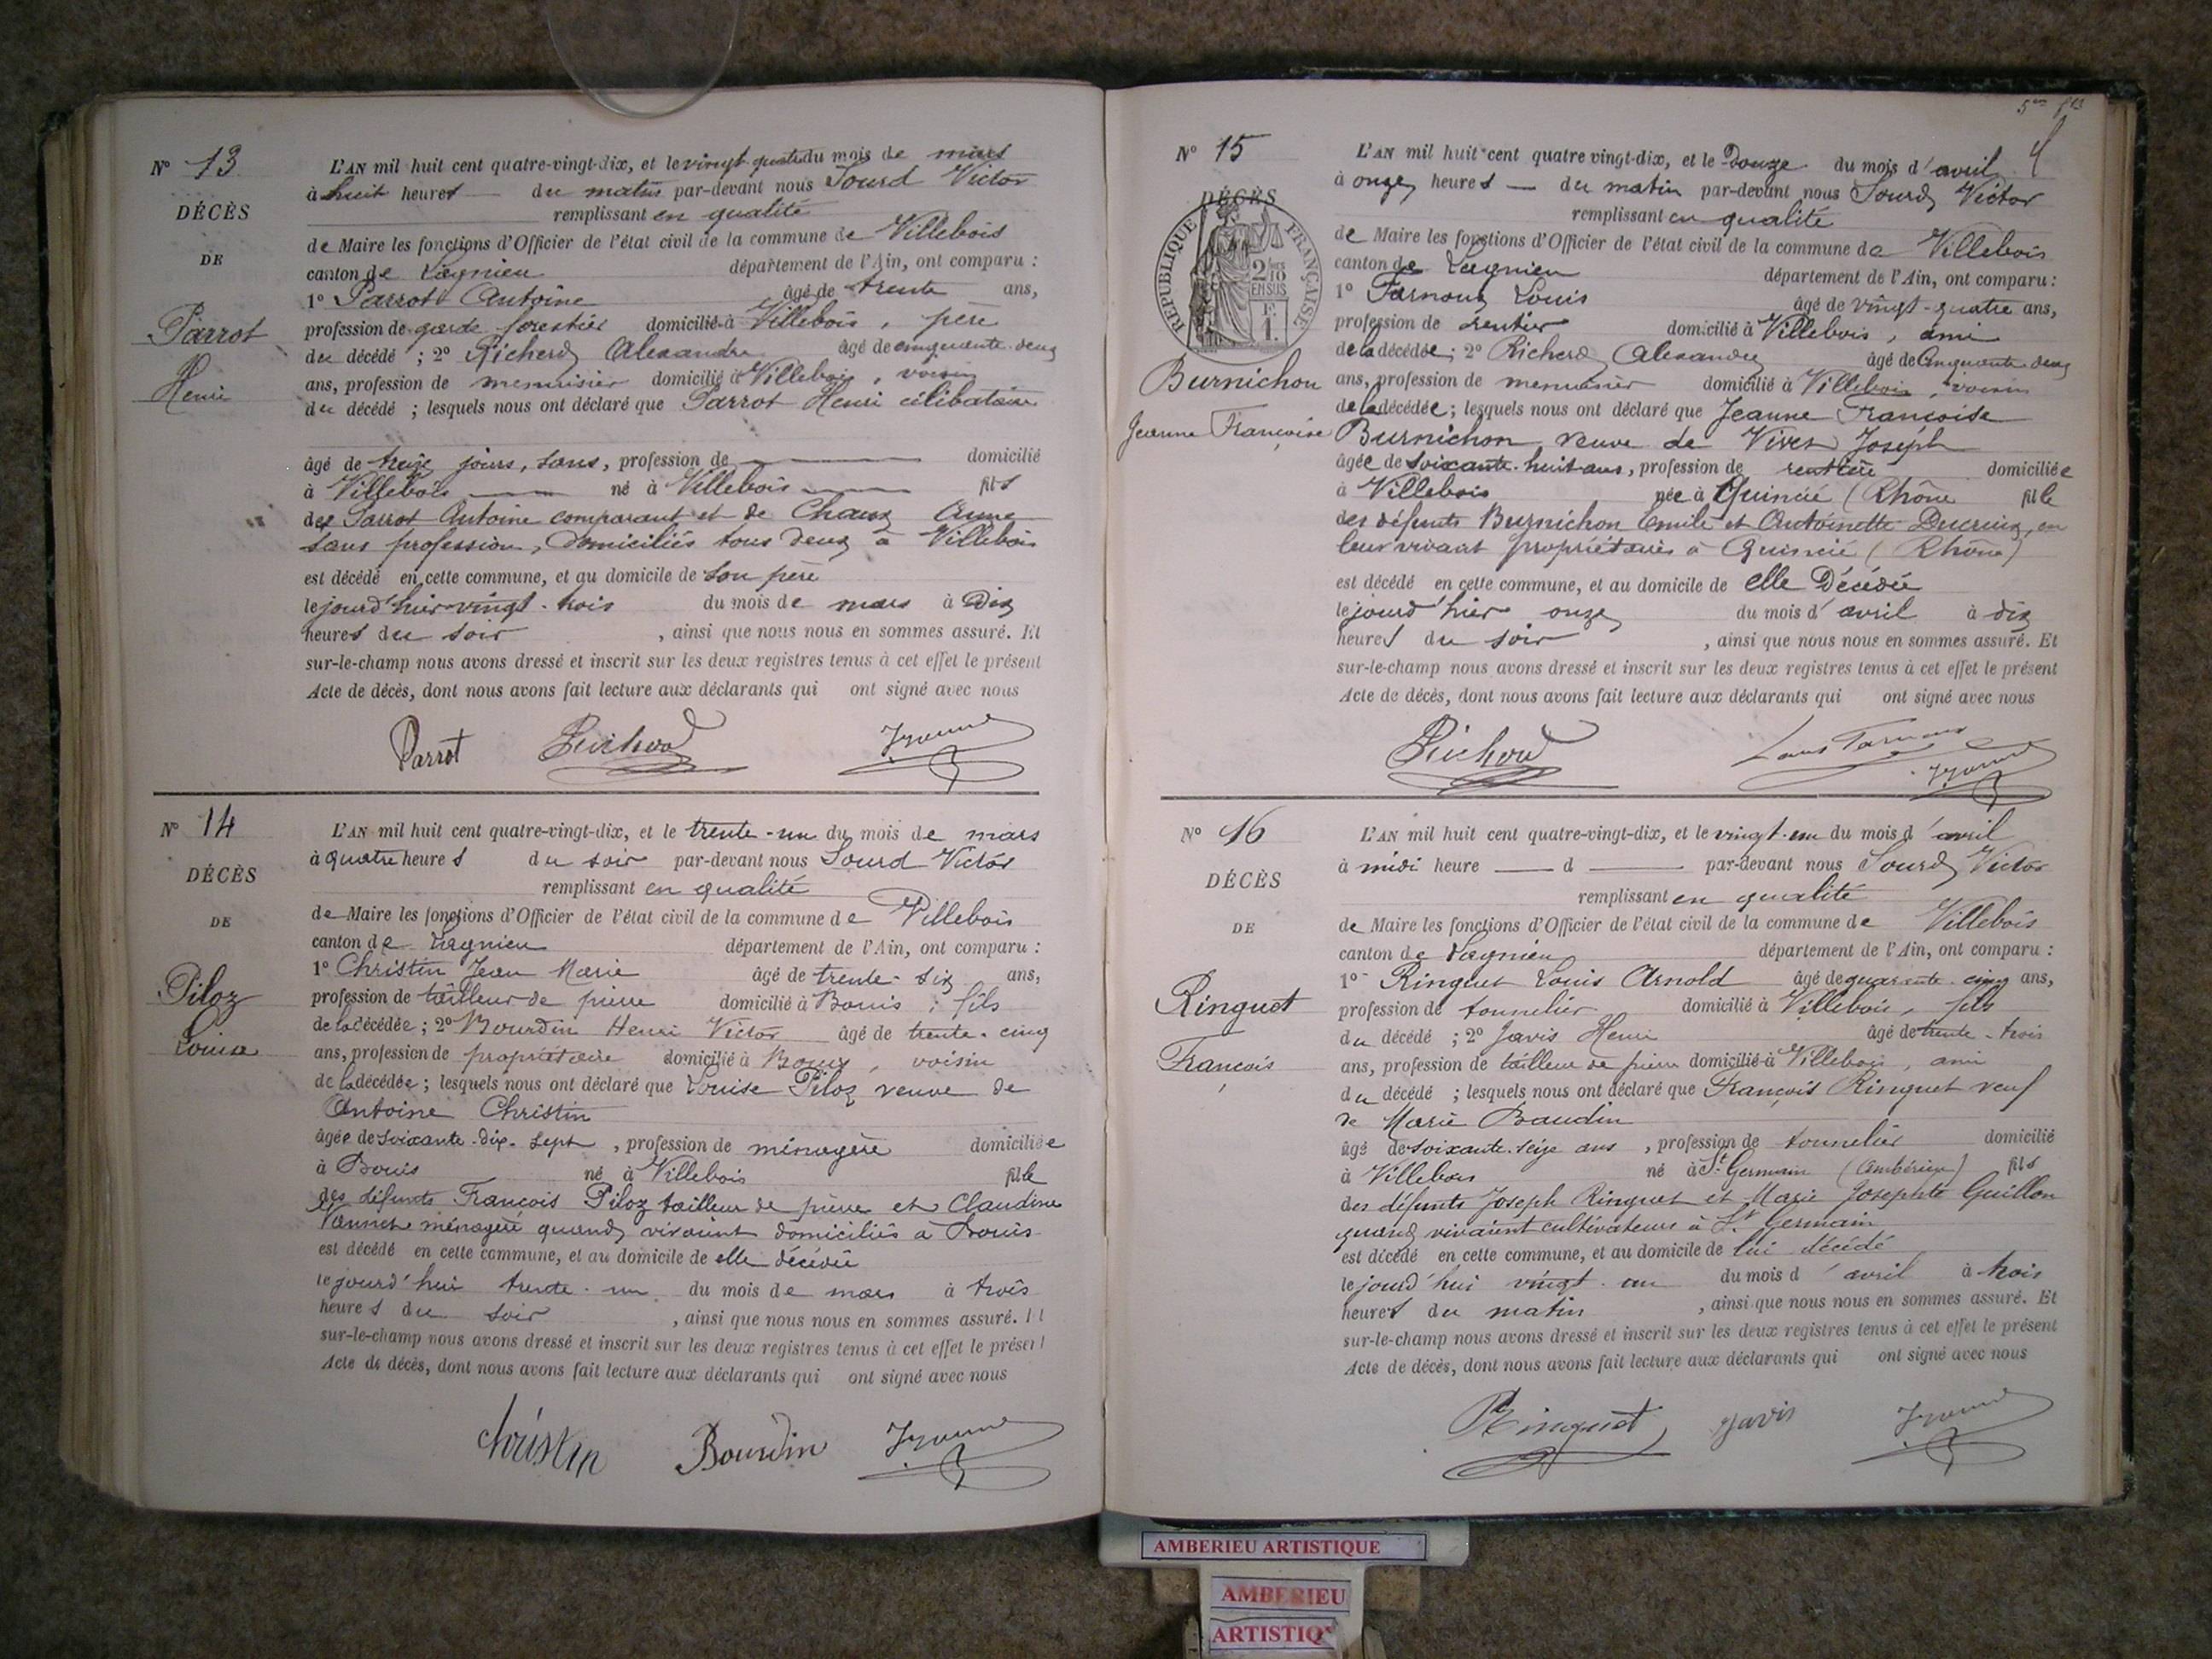 N° 13
DÉCÈS
DE
Parrot
Henri
L'AN mil huit cent quatre-vingt-dix, et le vingt-quatre du mois de mars
à huit heures — du matin par-devant nous Sourd Victor
remplissant en qualité
de Maire les fonctions d'Officier de l'état civil de la commune de Villebois
canton de Lagnieu département de l'Ain, ont comparu :
1° Parrot Antoine âgé de trente ans,
profession de garde forestier domicilié à Villebois, père
du décédé ; 2° Richerd Alexandre âgé de cinquante-deux
ans, profession de menuisier domicilié à Villebois, voisin
du décédé ; lesquels nous ont déclaré que Parrot Henri célibataire
âgé de treize jours, sans, profession de — domicilié
à Villebois — né à Villebois — fils
de Parrot Antoine comparant et de Chaux Anne
sans profession, domiciliés tous deux à Villebois
est décédé en cette commune, et au domicile de son père
le jourd'hier vingt-trois du mois de mars à dix
heures du soir , ainsi que nous nous en sommes assuré. Et
sur-le-champ nous avons dressé et inscrit sur les deux registres tenus à cet effet le présent
Acte de décès, dont nous avons fait lecture aux déclarants qui ont signé avec nous
Parrot Richerd
N° 14
DÉCÈS
DE
Piloz
Louise
L'AN mil huit cent quatre-vingt-dix, et le trente-un du mois de mars
à quatre heures du soir par-devant nous Sourd Victor
remplissant en qualité
de Maire les fonctions d'Officier de l'état civil de la commune de Villebois
canton de Lagnieu département de l'Ain, ont comparu :
1° Christin Jean Marie âgé de trente-six ans,
profession de tailleur de pierre domicilié à Bouis ; fils
de la décédée ; 2° Bourdin Henri Victor âgé de trente-cinq
ans, profession de propriétaire domicilié à Bouis, voisin
de la décédée ; lesquels nous ont déclaré que Louise Piloz veuve de
Antoine Christin
âgée de soixante-dix-sept , profession de ménagère domiciliée
à Bouis né à Villebois fille
des défunts François Piloz tailleur de pierre et Claudine
Vannet ménagère quand vivaient domiciliés à Bouis
est décédé en cette commune, et au domicile de elle décédée
le jourd'hui trente-un du mois de mars à trois
heures du soir , ainsi que nous nous en sommes assuré. Et
sur-le-champ nous avons dressé et inscrit sur les deux registres tenus à cet effet le présent
Acte de décès, dont nous avons fait lecture aux déclarants qui ont signé avec nous
Christin Bourdin
N° 15
DÉCÈS
RÉPUBLIQUE FRANÇAISE
2/10 EN SUS
F. 1.
Burnichon
Jeanne Françoise
L'AN mil huit cent quatre vingt-dix, et le Douze du mois d'avril
à onze heures — du matin par-devant nous Sourd Victor
remplissant en qualité
de Maire les fonctions d'Officier de l'état civil de la commune de Villebois
canton de Lagnieu département de l'Ain, ont comparu :
1° Tarnoux Louis âgé de vingt-quatre ans,
profession de rentier domicilié à Villebois, ami
de la décédée ; 2° Richerd Alexandre âgé de cinquante-deux
ans, profession de menuisier domicilié à Villebois, voisin
de la décédée ; lesquels nous ont déclaré que Jeanne Françoise
Burnichon veuve de Vives Joseph
âgée de soixante-huit ans, profession de rentière domiciliée
à Villebois née à Quincié (Rhône fille
des défunts Burnichon Emile et Antoinette Ducruix, en
leur vivant propriétaires à Quincié (Rhône)
est décédé en cette commune, et au domicile de elle Décédée
le jourd'hier onze du mois d'avril à dix
heures du soir , ainsi que nous nous en sommes assuré. Et
sur-le-champ nous avons dressé et inscrit sur les deux registres tenus à cet effet le présent
Acte de décès, dont nous avons fait lecture aux déclarants qui ont signé avec nous
Richerd Louis Tarnoux
N° 16
DÉCÈS
DE
Ringuet
François
L'AN mil huit cent quatre-vingt-dix, et le vingt-un du mois d'avril
à midi heure — d — par-devant nous Sourd Victor
remplissant en qualité
de Maire les fonctions d'Officier de l'état civil de la commune de Villebois
canton de Lagnieu département de l'Ain, ont comparu :
1° Ringuet Louis Arnold âgé de quarante-cinq ans,
profession de tonnelier domicilié à Villebois, fils
du décédé ; 2° Javis Henri âgé de trente-trois
ans, profession de tailleur de pierre domicilié à Villebois, ami
du décédé ; lesquels nous ont déclaré que François Ringuet veuf
de Marie Baudin
âgé de soixante-seize ans , profession de tonnelier domicilié
à Villebois né à St Germain (Ambérieu) fils
des défunts Joseph Ringuet et Marie Josephte Guillon
quand vivaient cultivateurs à St Germain
est décédé en cette commune, et au domicile de lui décédé
le jourd'hui vingt-un du mois d'avril à trois
heures du matin , ainsi que nous nous en sommes assuré. Et
sur-le-champ nous avons dressé et inscrit sur les deux registres tenus à cet effet le présent
Acte de décès, dont nous avons fait lecture aux déclarants qui ont signé avec nous
Ringuet Javis
AMBERIEU ARTISTIQUE
AMBERIEU
ARTISTIQ